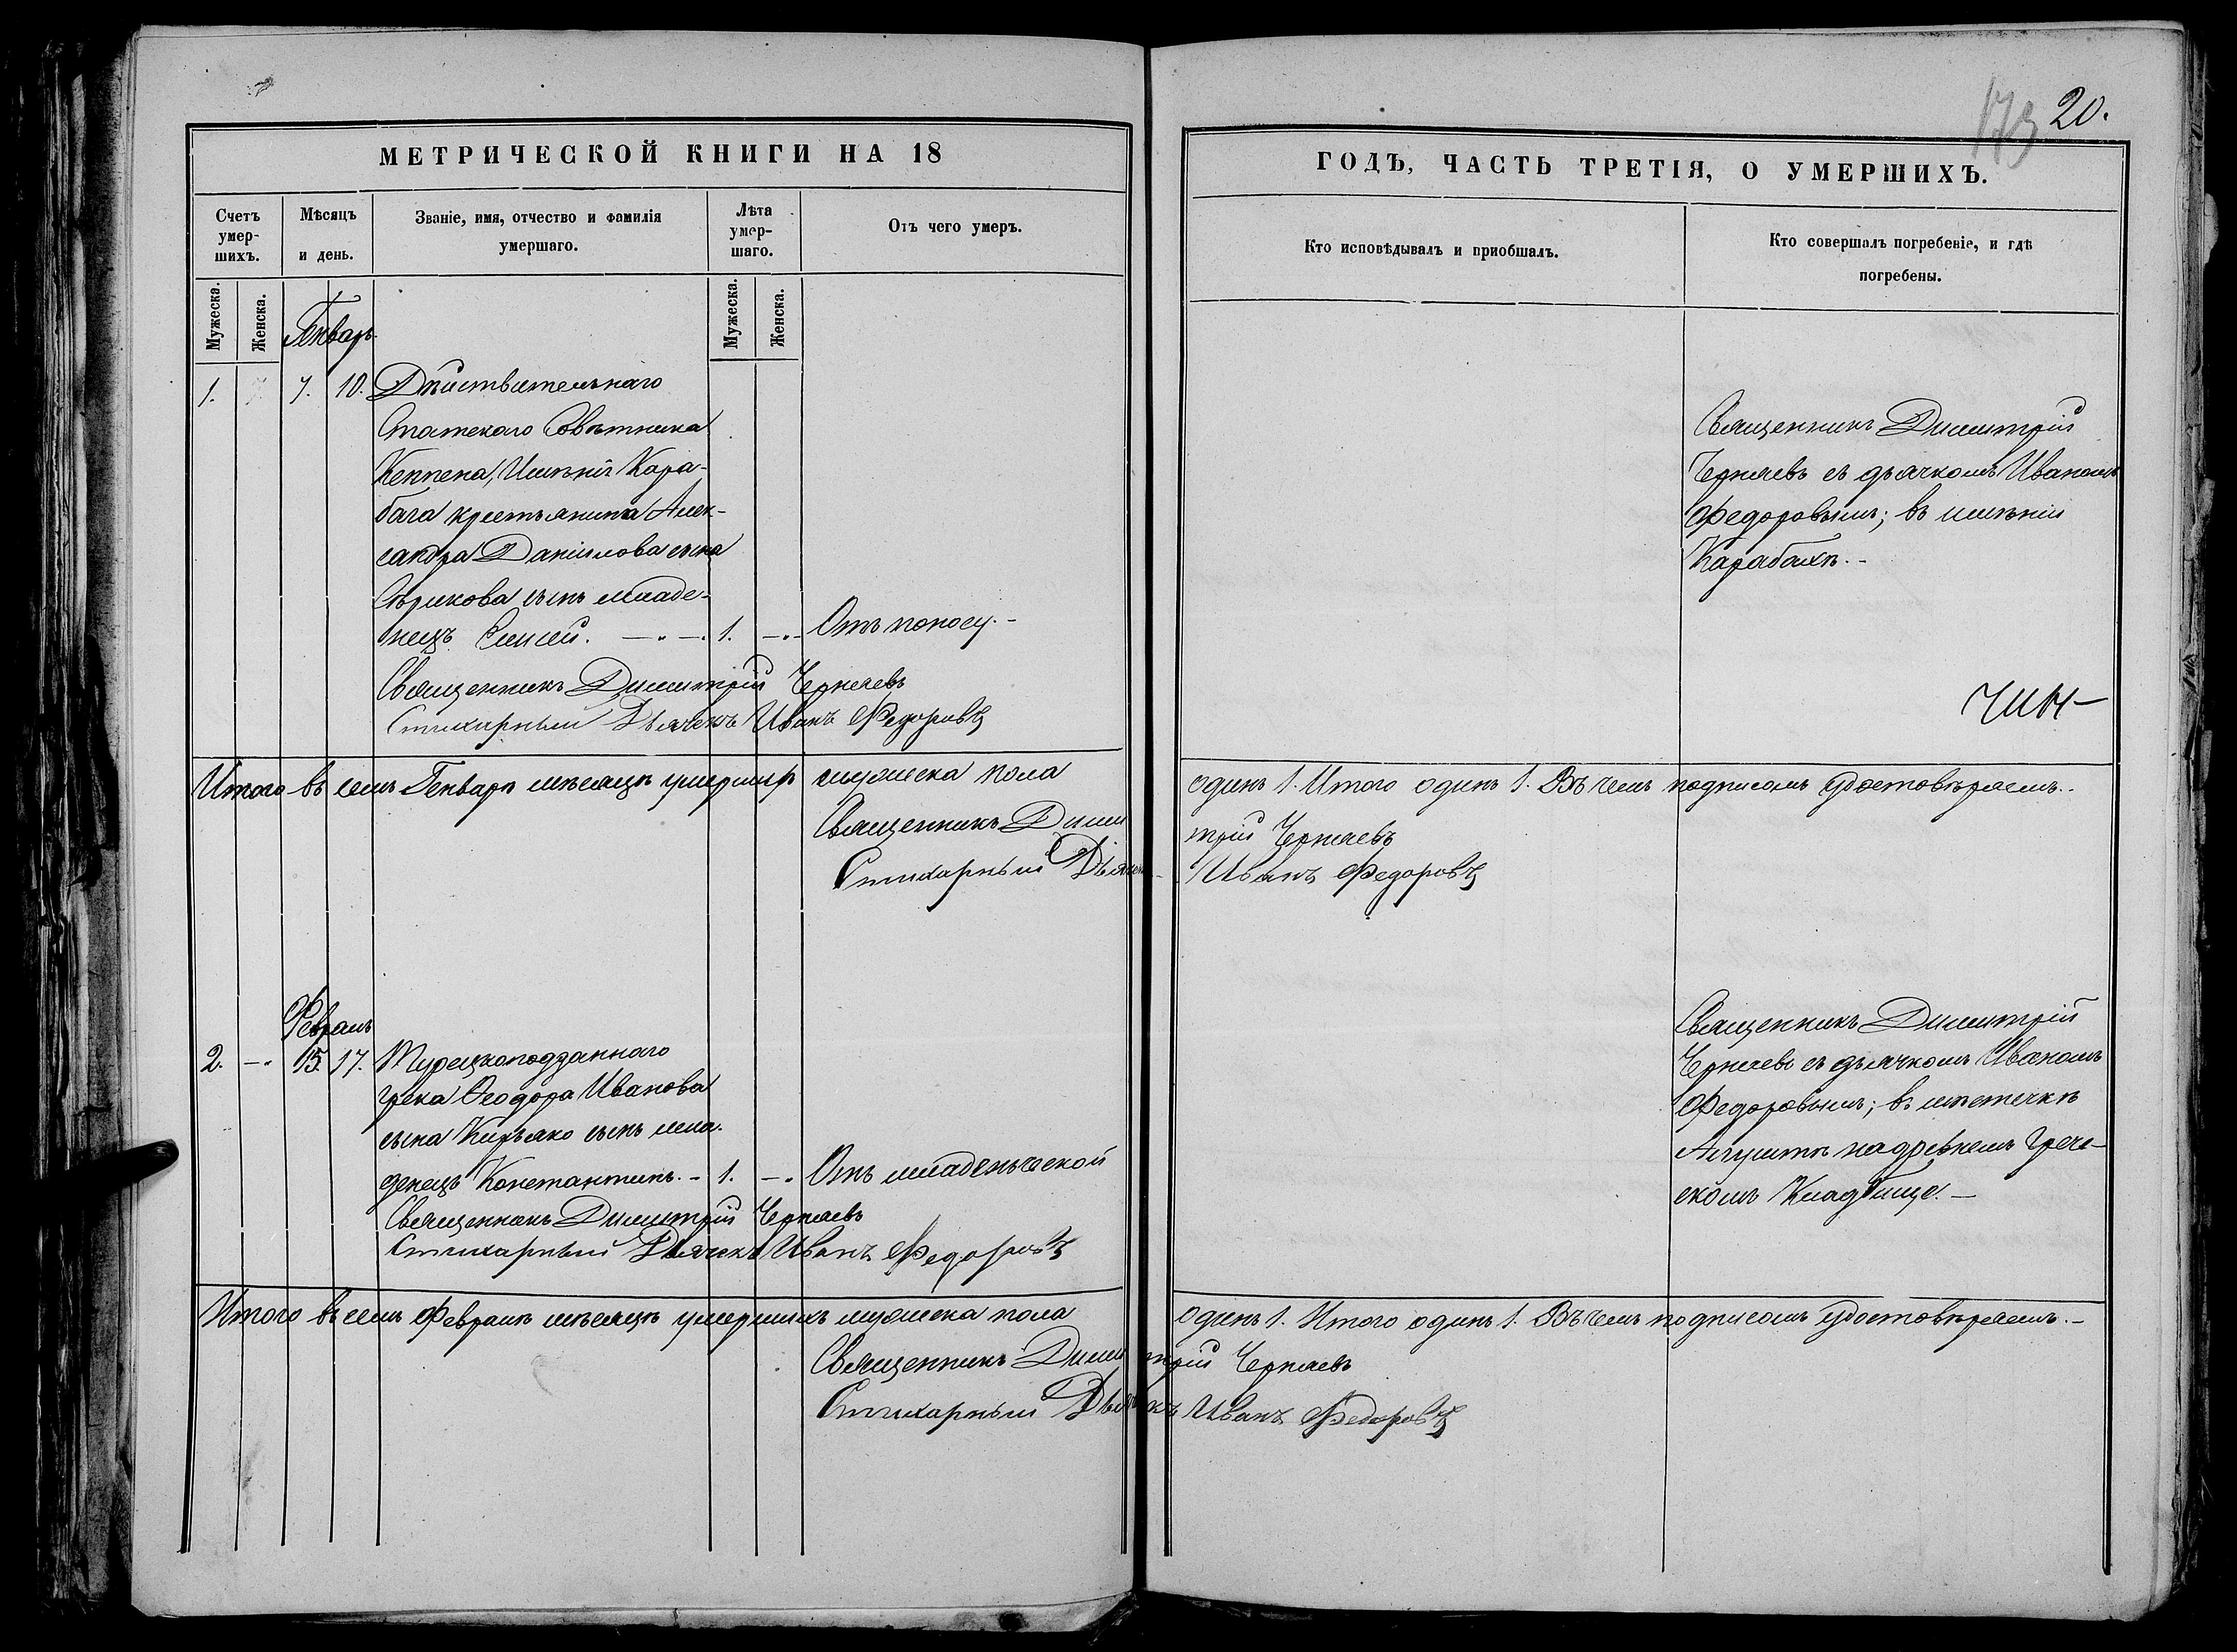 173 20.
МЕТРИЧЕСКОЙ КНИГИ НА 18
ГОДЪ, ЧАСТЬ ТРЕТІЯ, О УМЕРШИХЪ.
Счетъ умер-шихъ.
Мѣсяцъ и день.
Званіе, имя, отчество и фамилія
умершаго.
Лѣта умер-шаго.
Отъ чего умеръ.
Кто исповѣдывалъ и пріобщалъ.
Кто совершалъ погребеніе, и гдѣ
погребены.
Мужеска.
Женска.
Мужеска.
Женска.
Генварь.
1. 7. 10. Дѣйствительнаго
Статскаго Совѣтника
Кеппена, Имѣнія Кара-
бага крестьянина Алек-
сандра Даніилова сына
сынъ младе-
нецъ 1. Отъ поносу.-
Священникъ Димитрій Черняевъ
Стихарный Дьячекъ Иванъ Федоровъ
Священникъ Димитрій
Черняевъ съ дьячкомъ Иваномъ
Федоровымъ; въ имѣніи
Карабахѣ.-
Итого въ семъ Генварѣ мѣсяцѣ умерш. мужеска пола
одинъ 1. Итого одинъ 1. Въ чемъ подписомъ удостовѣряемъ.-
Священникъ Дими
трій Черняевъ
Стихарный Дьячекъ
Иванъ Федоровъ
Февраль
2. -" 15. 17. Турецкоподданнаго
грека Ѳеодора Иванова
сына Кирьяко сынъ мла-
денецъ Константинъ.- 1. -" Отъ младенческой
Священникъ Димитрій Черняевъ
Стихарный Дьячекъ Иванъ Федоровъ
Священникъ Димитрій
Черняевъ съ дьячкомъ Иваномъ
Федоровымъ; въ мѣстечкѣ
Алуштѣ на древнемъ Грече-
скомъ Кладбище.-
Итого въ семъ Февралѣ мѣсяцѣ умершихъ мужеска пола
одинъ 1. Итого одинъ 1. Въ чемъ подписомъ удостовѣряемъ.-
Священникъ Димитрій Черняевъ
Стихарный Дьячекъ Иванъ Федоровъ